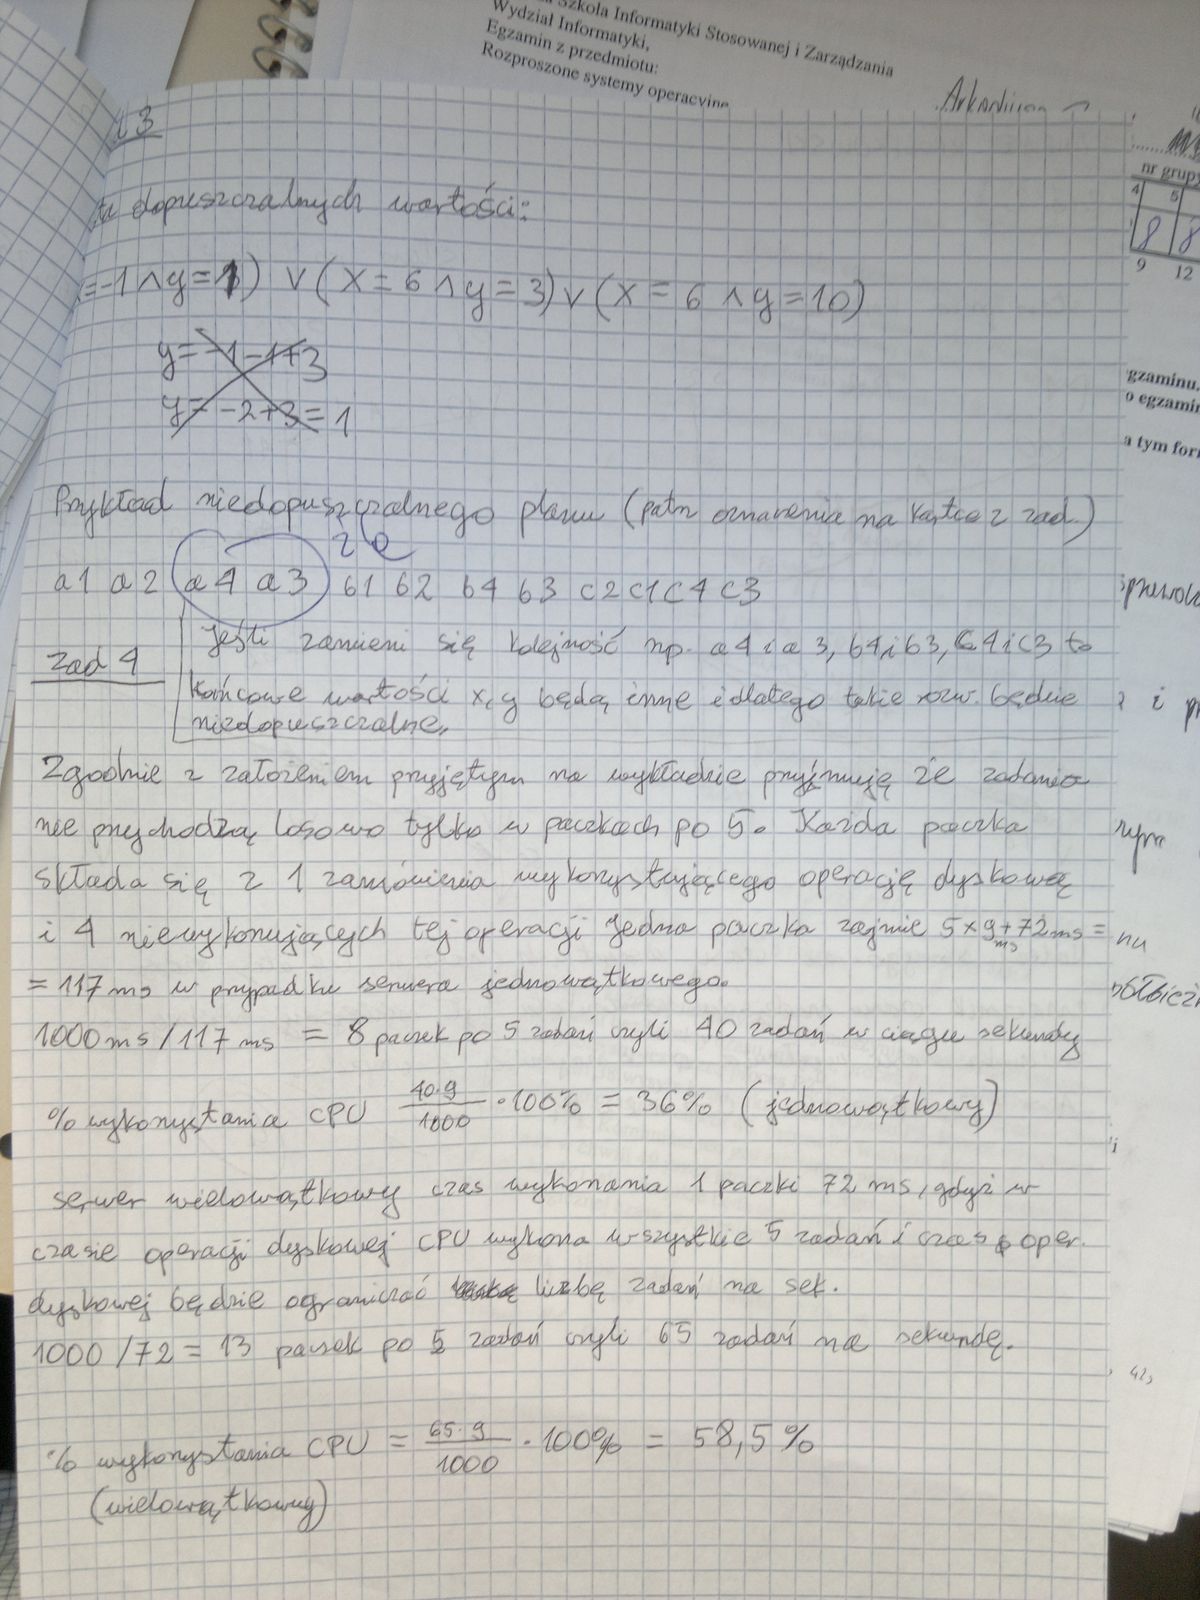 Szkoła Informatyki Stosowanej i Zarządzania
Wydział Informatyki,
Egzamin z przedmiotu:
Rozproszone systemy operacyjne
nr grupy
4 5
8 8
9 12
egzaminu.
o egzamin
a tym for
3
dopuszczalnych wartości:
=-1 ∧ y=1) ∨ (x=6 ∧ y=3) ∨ (x=6 ∧ y=10)
y=-1-1+3
y=-2+3=1
Przykład niedopuszczalnego planu (patrz oznaczenia na kartce z zad.)
a1 a2 a4 a3 b1 b2 b4 b3 c2 c1 c4 c3
Jeśli zamieni się kolejność np. a4 i a3, b4 i b3, c4 i c3 to
Zad 4
końcowe wartości x, y będą inne i dlatego takie rozw. będzie
niedopuszczalne.
Zgodnie z założeniem przyjętym na wykładzie przyjmuję że zadania
nie przychodzą losowo tylko w paczkach po 5. Każda paczka
składa się z 1 zamówienia wykorzystującego operację dyskową
i 4 niewykonujących tej operacji Jedna paczka zajmie 5×9+72ms =
ms
= 117 ms w przypadku serwera jednowątkowego.
1000 ms / 117 ms = 8 paczek po 5 zadań czyli 40 zadań w ciągu sekundy
% wykorzystania CPU 40·9/1000 · 100% = 36% (jednowątkowy)
serwer wielowątkowy czas wykonania 1 paczki 72 ms, gdyż w
czasie operacji dyskowej CPU wykona wszystkie 5 zadań i czas oper.
dyskowej będzie ograniczać liczbę zadań na sek.
1000/72 = 13 paczek po 5 zadań czyli 65 zadań na sekundę.
42,
% wykorzystania CPU = 65·9/1000 · 100% = 58,5%
(wielowątkowy)